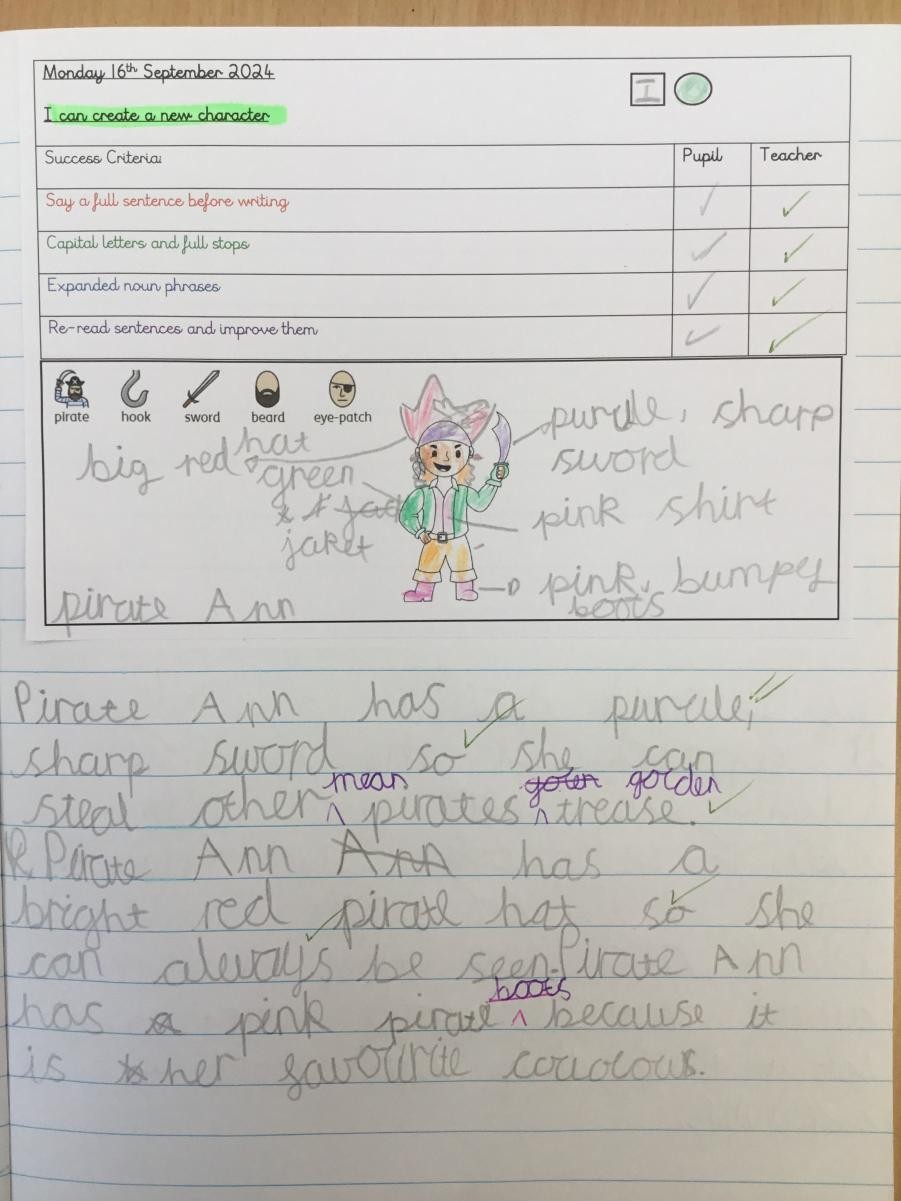 Monday 16th September 2024
I
I can create a new character
Success Criteria:
Pupil
Teacher
Say a full sentence before writing
Capital letters and full stops
Expanded noun phrases
Re-read sentences and improve them
pirate
hook
sword
beard
eye-patch
big red hat
green
jaket
purule, sharp
sword
pink shirt
pink, bumpey
boots
pirate Ann
Pirate Ann has a purule,
sharp sword so she can
mean goten golden
steal other pirates trease.
Pirate Ann Ann has a
bright red pirate hat so she
can always be seen. Pirate Ann
boots
has a pink pirate because it
is her favourite